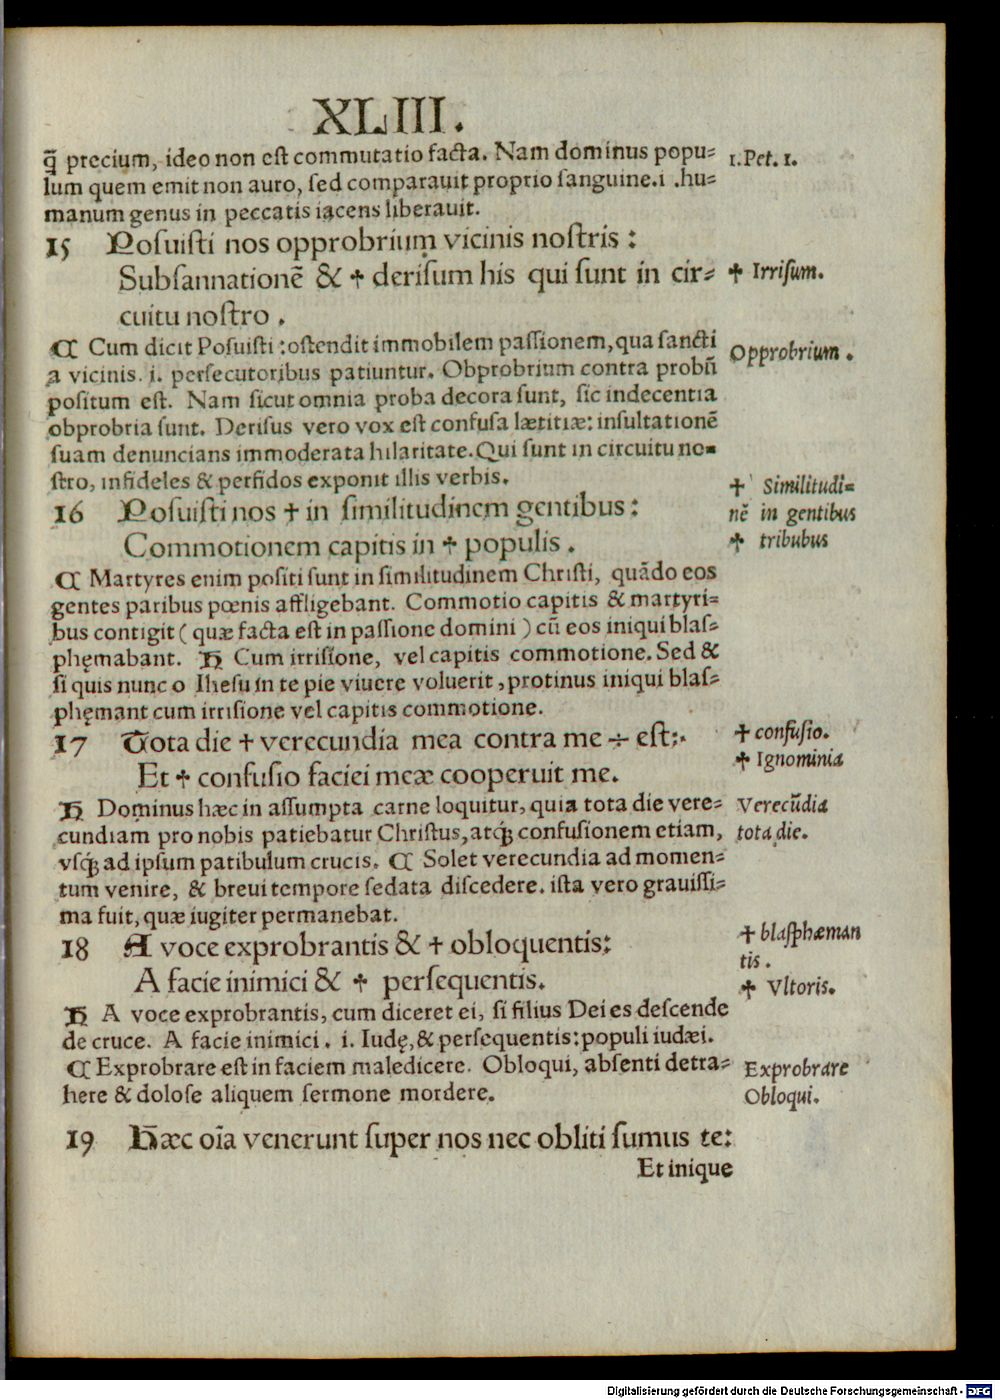 XLIII.
q̃ precium, ideo non est commutatio facta. Nam dominus popu⸗
lum quem emit non auro, sed comparauit proprio sanguine.i .hu⸗
manum genus in peccatis iacens liberauit.
1.Pet. 1.
15 Posuisti nos opprobrium vicinis nostris :
Subsannationē & ✝ derisum his qui sunt in cir⸗
cuitu nostro .
✝ Irrisum.
C Cum dicit Posuisti : ostendit immobilem passionem, qua sancti
a vicinis. i. persecutoribus patiuntur. Obprobrium contra probũ
positum est. Nam sicut omnia proba decora sunt, sic indecentia
obprobria sunt. Derisus vero vox est confusa lætitiæ: insultationē
suam denuncians immoderata hilaritate. Qui sunt in circuitu no⸗
stro, infideles & perfidos exponit illis verbis.
Opprobrium .
16 Posuisti nos ✝ in similitudinem gentibus :
Commotionem capitis in ✝ populis .
✝ Similitudi⸗
nē in gentibus
✝ tribubus
C Martyres enim positi sunt in similitudinem Christi, quãdo eos
gentes paribus pœnis affligebant. Commotio capitis & martyri⸗
bus contigit ( quæ facta est in passione domini ) cũ eos iniqui blas⸗
phęmabant. H Cum irrisione, vel capitis commotione. Sed &
si quis nunc o Ihesu in te pie viuere voluerit, protinus iniqui blas⸗
phęmant cum irrisione vel capitis commotione.
17 Tota die ✝ verecundia mea contra me ÷ est:·
Et ✝ confusio faciei meæ cooperuit me.
✝ confusio.
✝ Ignominia
H Dominus hæc in assumpta carne loquitur, quia tota die vere⸗
cundiam pro nobis patiebatur Christus, atq; confusionem etiam,
vsq; ad ipsum patibulum crucis. C Solet verecundia ad momen⸗
tum venire, & breui tempore sedata discedere. ista vero grauissi⸗
ma fuit, quæ iugiter permanebat.
Verecũdia
tota die.
18 A voce exprobrantis & ✝ obloquentis:
A facie inimici & ✝ persequentis.
✝ blasphæman
tis .
✝ Vltoris.
H A voce exprobrantis, cum diceret ei, si filius Dei es descende
de cruce. A facie inimici . i. Iudę, & persequentis: populi iudæi.
C Exprobrare est in faciem maledicere. Obloqui, absenti detra⸗
here & dolose aliquem sermone mordere.
Exprobrare
Obloqui.
19 Hæc oĩa venerunt super nos nec obliti sumus te:
Et inique
Digitalisierung gefördert durch die Deutsche Forschungsgemeinschaft - DFG